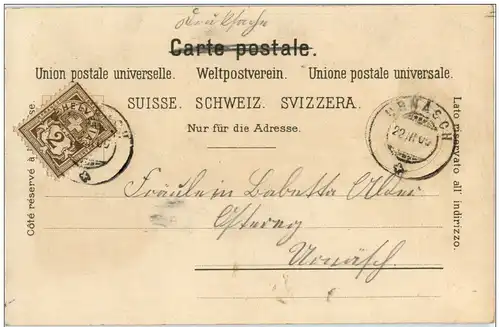 Drucksache
Carte postale.
Union postale universelle. Weltpostverein. Unione postale universale.
SUISSE. SCHWEIZ. SVIZZERA.
Nur für die Adresse.
Côté réservé à
Lato riservato all' indirizzo.
HELVETIA
2
URNÄSCH
Fräulein Babetta Alder
Urnäsch.